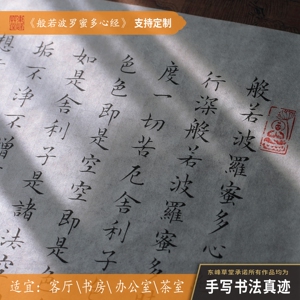 《般若波罗蜜多心经》 支持定制
般若波羅蜜多心
行深般若波羅蜜多
度一切苦厄舍利子
色色即是空空
如是舍利子是諸法空
垢不淨不增
想
东峰草堂承诺所有作品均为
手写书法真迹
适宜：客厅\书房\办公室\茶室